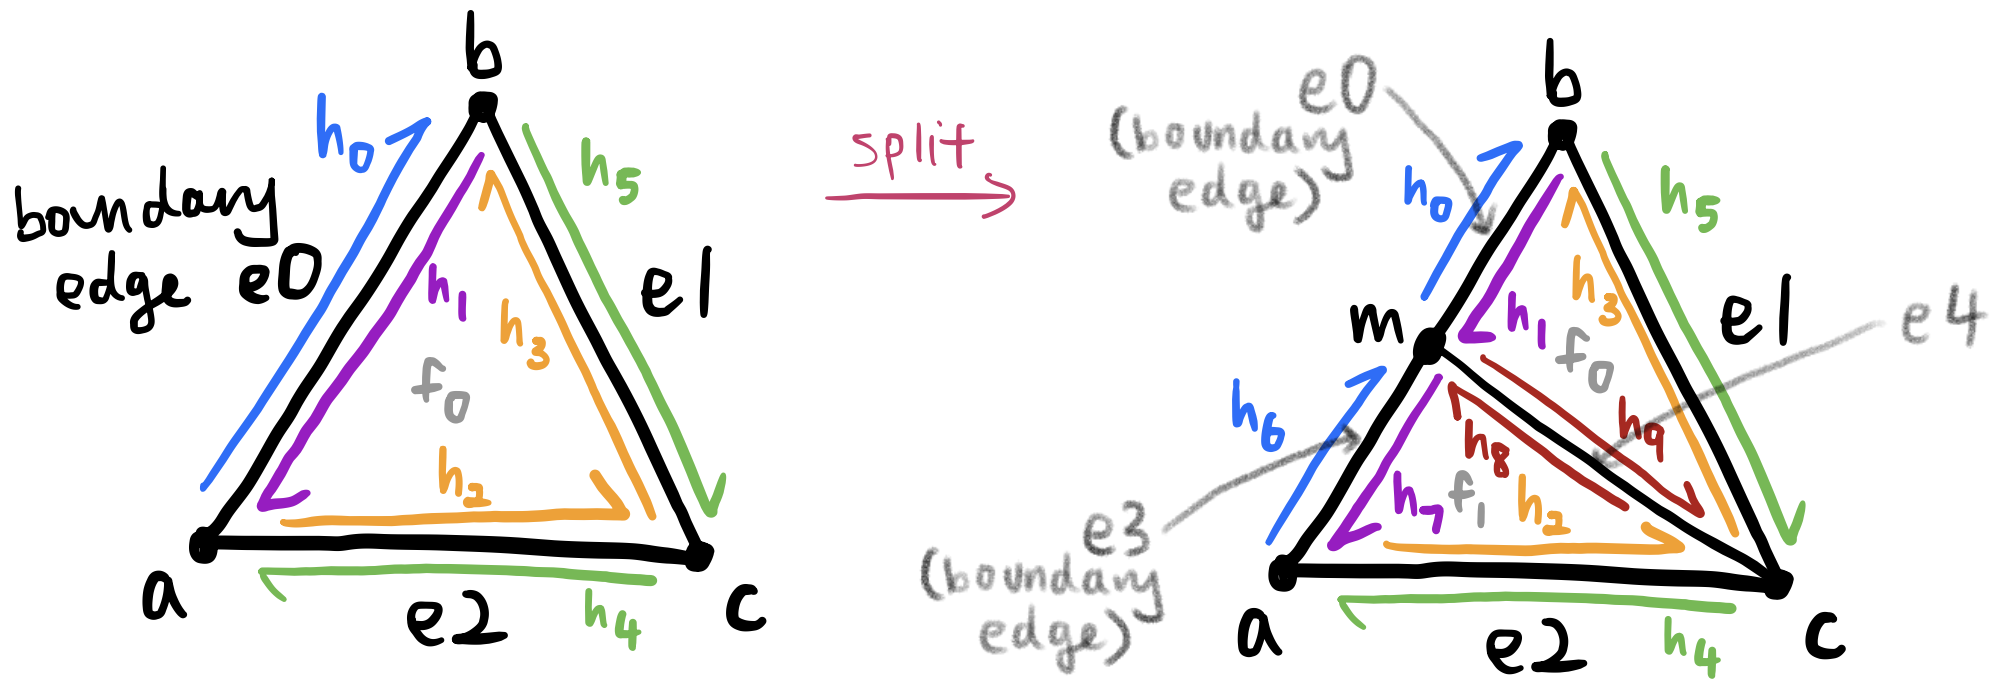 b
h0
h5
boundary
edge e0
h1
h3
e1
f0
h2
a
e2
h4
c
split
e0
(boundary
edge)
b
h0
h5
h3
m
h1
e1
e4
f0
h6
h9
h8
h7
f1
h2
e3
(boundary
edge)
a
e2
h4
c